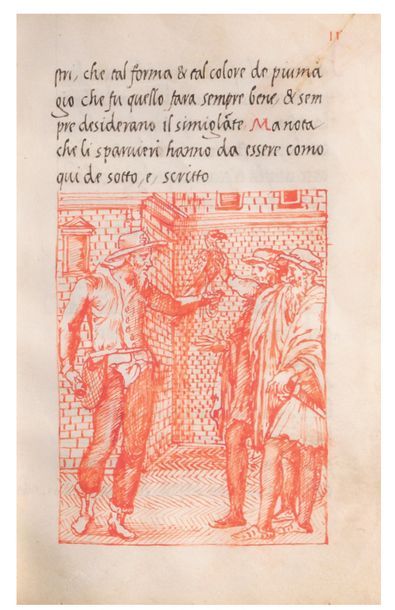 11
stri, che tal forma & tal colore de piuma
gio che fu quello fara sempre bene, & sem
pre desiderano il simigliāte Ma nota
che li sparuieri hanno da essere como
qui de sotto, e, scritto